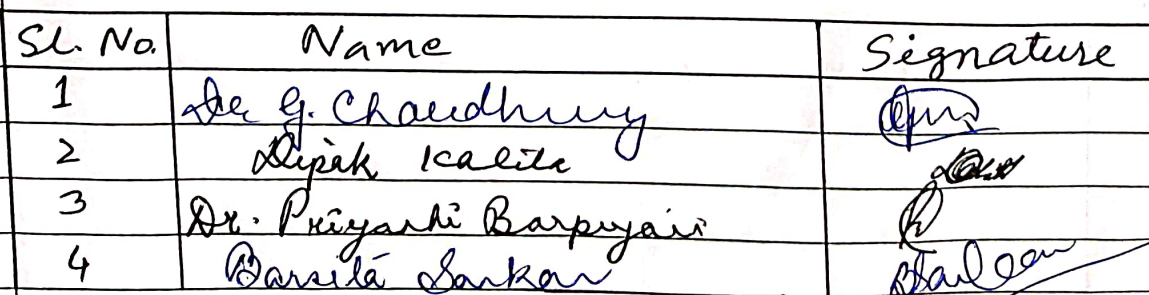 Sl. No. Name Signature
1 Dr G. Chaudhury
2 Dipak Kalita
3 Dr. Priyashi Barpujari
4 Barsita Sarkar